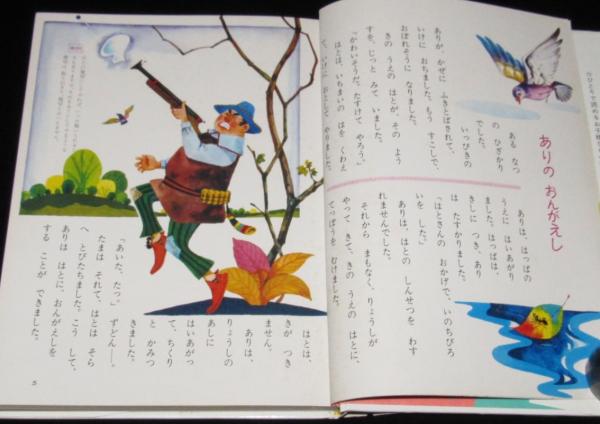 ありの おんがえし
ある なつ
の ひざかり
でした。
いっぴきの
ありが、かぜに ふきとばされて、
いけに おちました。もう すこしで、
おぼれそうに なりました。
きの うえの はとが、その よう
すを、じっと みて いました。
「かわいそうだ。たすけて やろう。」
はとは、いちまいの はを くわえ
て、いけに おとして やりました。
ありは、はっぱの
うえに はいあがり
ました。はっぱは、
きしに つき、あり
は たすかりました。
「はとさんの おかげで、いのちびろ
いを した。」
ありは、はとの しんせつを わす
れませんでした。
それから まもなく、りょうしが
やって きて、きの うえの はとに、
てっぽうを むけました。
はとは、
きが つき
ません。
ありは、
りょうしの
あしに
はいあがっ
て、ちくり
と かみつ
きました。
「あいた、たっ」 ずどーん―。
たまは それて、はとは そら
へ とびたちました。こう して、
ありは はとに、おんがえしを
する ことが できました。
5